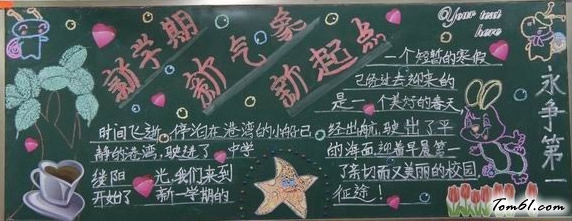 新学期
新气象
新起点
Your text
here
一个短暂的寒假
已经过去迎来的
是一个美好的春天,
永争第一
时间飞逝,停泊在港湾的小船已经出航,驶出了平
静的港湾,驶进了中学的海面,迎着早晨第一
缕阳光,我们来到了亲切而又美丽的校园,
开始了新一学期的征途!
Tom61.com